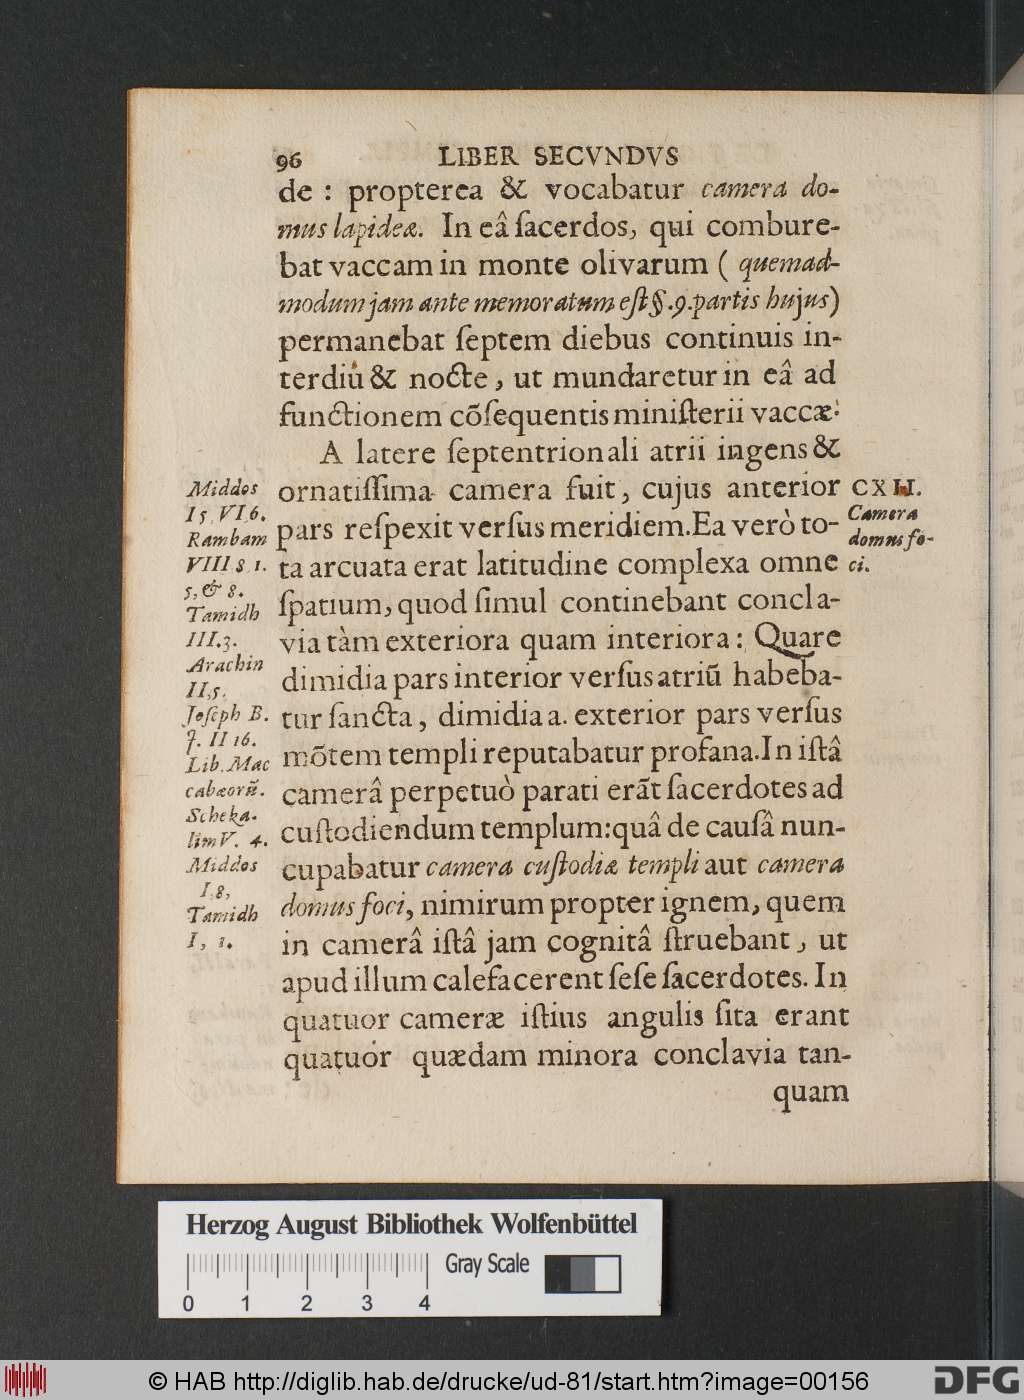 96 LIBER SECVNDVS
de : propterea & vocabatur camera do-
mus lapideæ. In eâ ſacerdos, qui combure-
bat vaccam in monte olivarum ( quemad-
modum jam ante memoratum eſt §.9. partis hujus)
permanebat ſeptem diebus continuis in-
terdiu & nocte, ut mundaretur in eâ ad
functionem cõſequentis miniſterii vaccæ.
A latere ſeptentrionali atrii ingens &
ornatiſſima camera fuit, cujus anterior
pars reſpexit verſus meridiem. Ea verò to-
ta arcuata erat latitudine complexa omne
ſpatium, quod ſimul continebant concla-
via tàm exteriora quam interiora: Quare
dimidia pars interior verſus atriũ habeba-
tur ſancta, dimidia a. exterior pars verſus
mõtem templi reputabatur profana. In iſtâ
camerâ perpetuò parati erãt ſacerdotes ad
cuſtodiendum templum: quâ de cauſâ nun-
cupabatur camera cuſtodiæ templi aut camera
domus foci, nimirum propter ignem, quem
in camerâ iſtâ jam cognitâ ſtruebant, ut
apud illum calefacerent ſeſe ſacerdotes. In
quatuor cameræ iſtius angulis ſita erant
quatuor quædam minora conclavia tan-
quam
Middos
I 5, VI 6.
Rambam
VIII 8, 1.
5, & 8.
Tamidh
III. 3.
Arachin
II, 5.
Joſeph B.
J. II 16.
Lib. Mac
cabæorũ.
Scheka-
lim V. 4.
Middos
I, 8,
Tamidh
I, 1.
CXII.
Camera
domus fo-
ci.
Herzog August Bibliothek Wolfenbüttel
Gray Scale
0 1 2 3 4
© HAB http://diglib.hab.de/drucke/ud-81/start.htm?image=00156
DFG